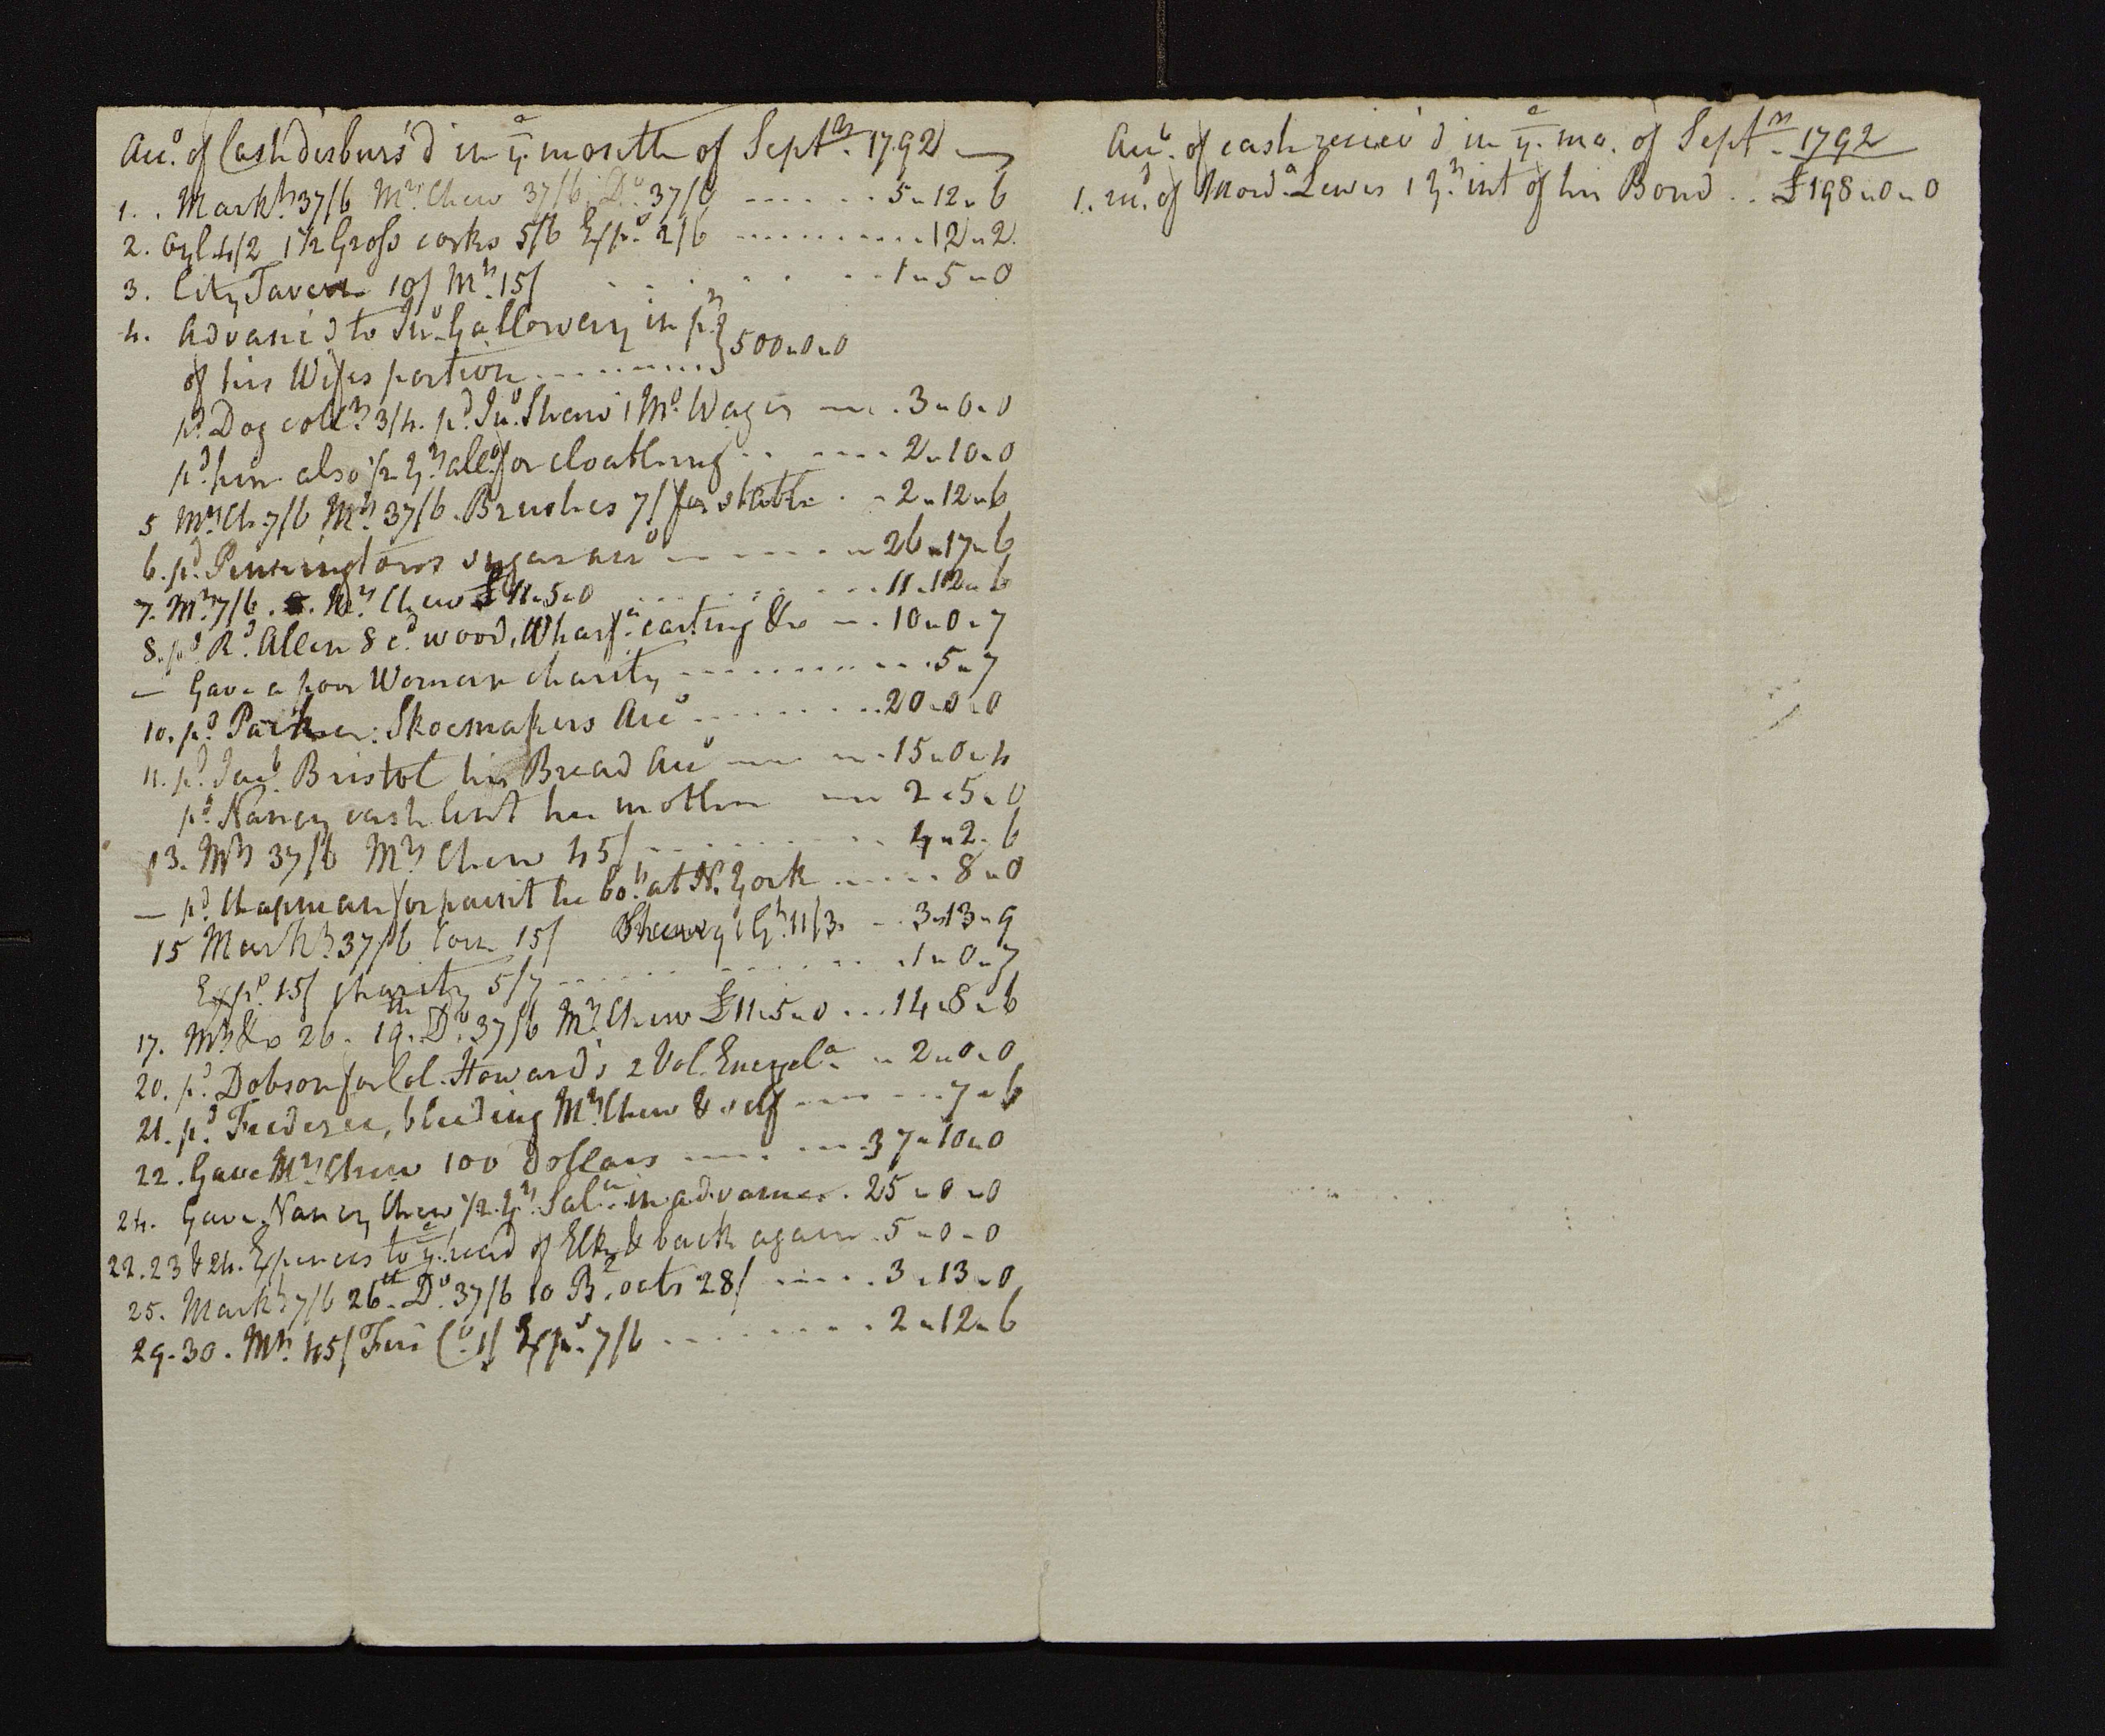 Acc.o of Cash disburs'd in y.e month of Sept.r 1792
1. . Mark.t 37/6 M.rs Chew 37/6. D.o 37/6 ------ 5"12"6
2. Oyl 4/2 1 1/2 Gross corks 5/6 Exp.s 2/6 --------- 12"2
3. City Tavern 10/ M.t 15/ ------ 1"5"0
4. Advanc'd to Jn.o Galloway in p.t } 500"0"0
of his Wifes portion ---------
p.d Dog coll.r 3/4. p.d Jn.o Shaw 1 M.o Wages --- 3"0"0
p.d him also 1/2 y.rs all.o for cloathing ------ 2"10"0
5 M.rs Ch. 7/6 M.t 37/6. Brushes 7/ for stable - 2"12"6
6. p.d Penningtons sugar acc.o ------ 26"17"6
7. M.t 7/6. M.rs Chew £11"5"0 ------ 11"12"6
8. p.d R.d Allen 8 c.d wood, Wharf.a carting &c --- 10"0"7
— Gave a poor Woman charity ---------- 5"7
10. p.d Parker: Shoemakers Acc.o -------- 20"0"0
11. p.d Jac.b Bristol his Bread Acc.o ----- 15"0"4
p.d Nancy cash lent her mother --- 2"5"0
13. M.t 37/6 M.rs Chew 45/ -------- 4"2"6
— p.d Chapman for paint he bo.t at N. York ------ 8"0
15 Mark.t 37/6 Corn 15/ 1 G.n 11/3 -- 3"13"9
Exp.s 15/ charity 5/7 -------- 1"0"7
17. M.t &c 26. 19.th D.o 37/6 M.rs Chew £11"5"0 --- 14"8"6
20. p.d Dobson for Col. Howard's 2 Vol. Encycl.a -- 2"0"0
21. p.d Frederec, bleeding M.rs Chew & self ------ 7"6
22. Gave M.rs Chew 100 Dollars ------ 37"10"0
24. Gave Nancy Chew 1/2 y.rs Sal.a in advance. 25"0"0
22. 23 & 24. Expences to y.e head of Elk & back again. 5"0"0
25. Mark.t 7/6 26.th D.o 37/6 10 B. oats 28/ ----- 3"13"0
29. 30. M.t 45/ Exp.s 7/6 -------- 2"12"6
Acc.o of cash receiv'd in y.e mo. of Sept.r 1792
1. rec.d of Mord.a Lewis 1 y.rs int of his Bond .. £198"0"0